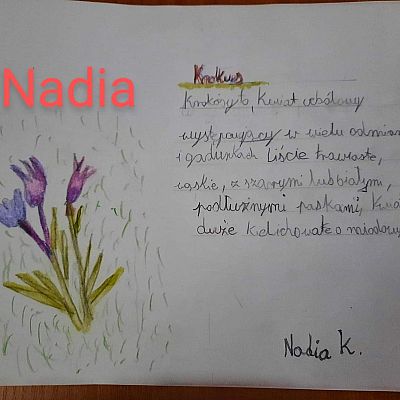 Nadia
Krokus
Krokus to, kwiat cebulowy
występujący w wielu odmian
i gatunkach liście trawaste,
wąskie, z szarymi lub białymi,
podłużnymi paskami, kwia
duże kielichowate o miodowy
Nadia K.